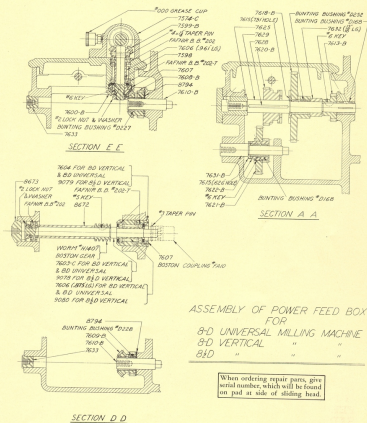 #000 GREASE CUP
7574-C
7599-B
#4x1½ TAPER PIN
FAFNIR B.B. #202
7606 (.961 LG)
7598
FAFNIR B.B. #202-T
7607
7608-B
8794
7610-B
#6 KEY
7600-B
#2 LOCK NUT & WASHER
BUNTING BUSHING #D227
7633
SECTION E E
7618-B
7615 (1⅜ HOLE)
7623
7629
7628
7620-B
BUNTING BUSHING #D252
BUNTING BUSHING #D168
#6 KEY
7613-B
7631-B
7615 (.626 HOLE)
7622-B
#6 KEY
7621-B
BUNTING BUSHING #D168
SECTION A A
7604 FOR 8D VERTICAL
& 8D UNIVERSAL
9079 FOR 8½D VERTICAL
FAFNIR B.B. #202-T
#5 KEY
8672
8673
#2 LOCK NUT
& WASHER
FAFNIR B.B. #202
TAPER PIN
7607
BOSTON COUPLING #FA10
WORM #H1407
BOSTON GEAR
7603-C FOR 8D VERTICAL
& 8D UNIVERSAL
9078 FOR 8½D VERTICAL
FOR 8D VERTICAL
& 8D UNIVERSAL
9080 FOR 8½D VERTICAL
8794
BUNTING BUSHING #D228
7609-B
7610-B
7633
SECTION D D
ASSEMBLY OF POWER FEED BOX
FOR
8-D UNIVERSAL MILLING MACHINE
8-D VERTICAL " "
8½D " " "
When ordering repair parts, give
serial number, which will be found
on pad at side of sliding head.